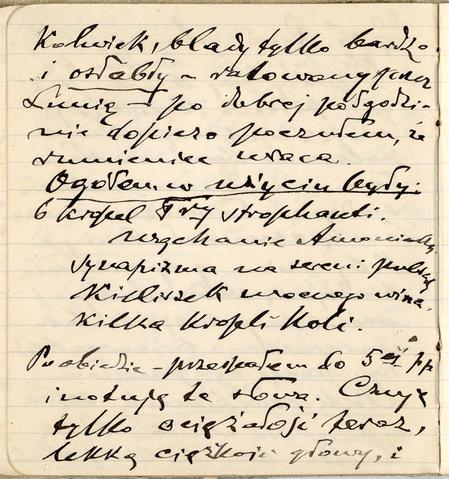 Kolwiek, blady tylko bardzo
i osłabły – ratowany przez
Lunię – po dobrej półgodzi-
nie dopiero poczułem, że
rumieniec wraca.
Ogółem w użyciu były:
6 kropel Try strophanti.
wąchanie Amoniaku,
synapizma na serce i pulsy
Kieliszek mocnego wina,
Kilka Kropli Koli.
Po obiedzie – przespałem do 5ej pp
i notuję te słowa. Czuję
tylko ociężałość teraz,
lekką ciężkość głowy, i